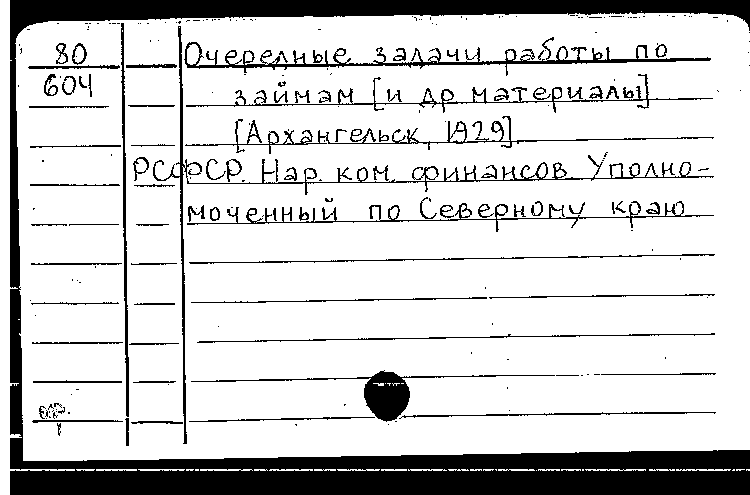 80
604
Очередные задачи работы по
займам [и др материалы]
[Архангельск, 1929]
РСФСР. Нар. ком. финансов Уполно-
моченный по Северному краю